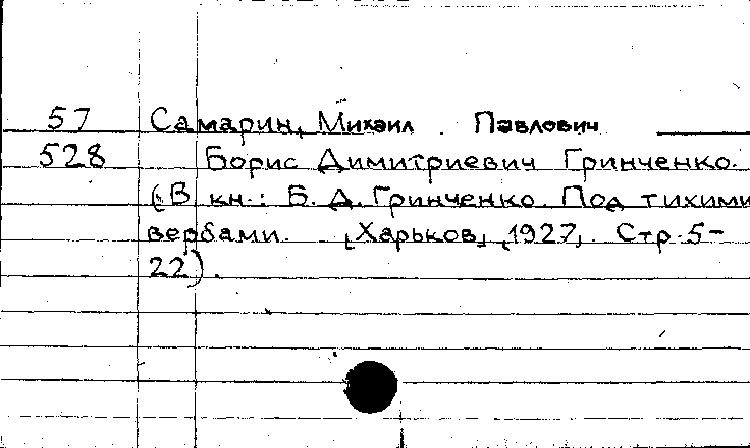 57 Самарин, Михаил . Павлович
528 Борис Димитриевич Гринченко.
(В кн.: Б. Д. Гринченко. Под тихими
вербами. [Харьков], [1927]. Стр. 5-
22).